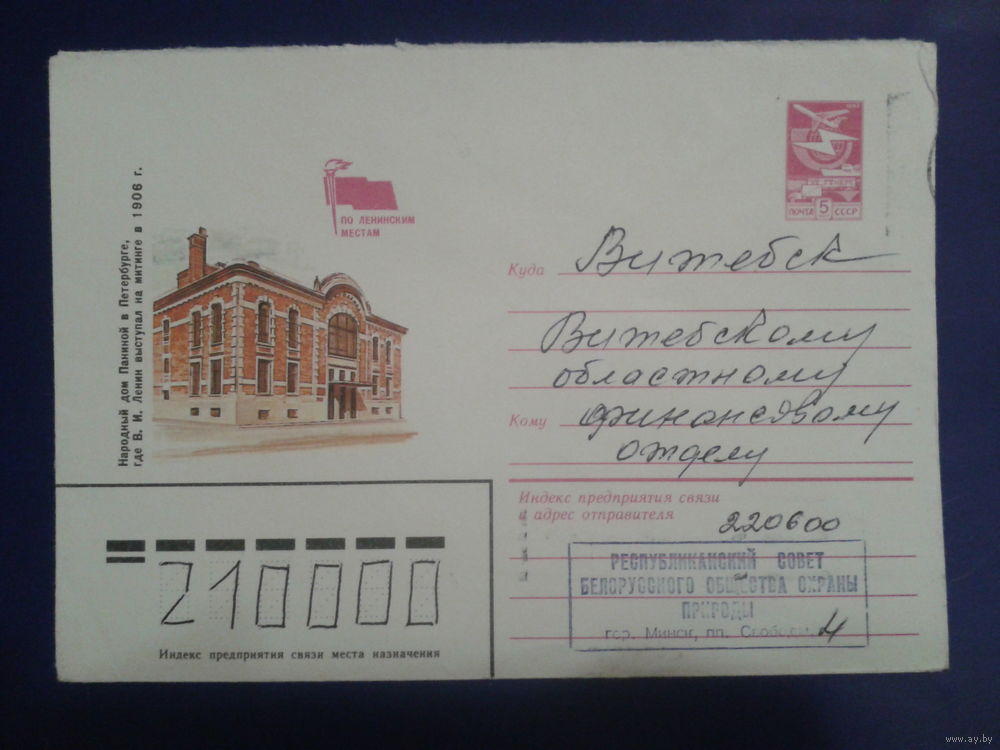 Народный дом Паниной в Петербурге,
где В. И. Ленин выступал на митинге в 1906 г.
ПО ЛЕНИНСКИМ
МЕСТАМ
ПОЧТА 5 СССР
Куда Витебск
Витебскому
областному
Кому финансовому
отделу
Индекс предприятия связи
и адрес отправителя
220600
РЕСПУБЛИКАНСКИЙ СОВЕТ
БЕЛОРУССКОГО ОБЩЕСТВА ОХРАНЫ
ПРИРОДЫ
гор. Минск, пл. Свободы, 4
210000
Индекс предприятия связи места назначения
www.ay.by